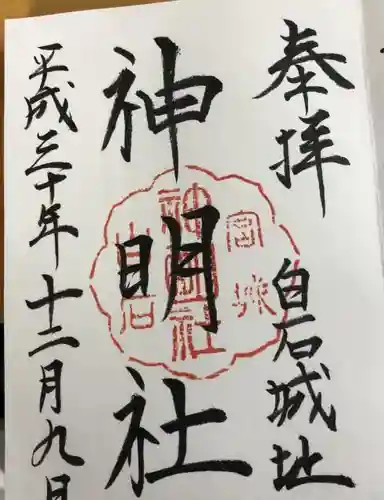 奉拝
白石城址
神明社
神明社
宮城
白石
平成三十年十二月九日